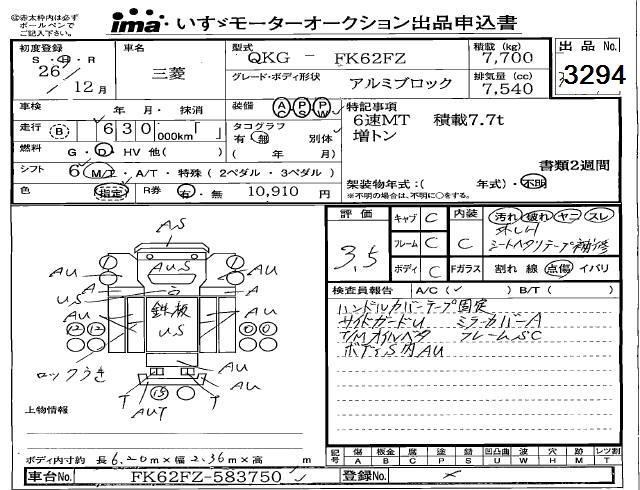 ◎赤太枠内は必ず
ボールペンで
ご記入下さい。
ima いすゞモーターオークション出品申込書
初度登録
S・H・R
26/12月
車名
三菱
型式
QKG - FK62FZ
グレード・ボディ形状
アルミブロック
積載(kg)
7,700
排気量(cc)
7,540
出品No.
3294
車検 年 月・抹消
走行 B 630,000km「 」
燃料 G・D・HV 他( )
シフト 6 M/T・A/T・特殊(2ペダル・3ペダル)
色 指定 R券 有・無 10,910 円
装備 A/C P/S P/W
タコグラフ 別体
有・無
( 年 月)
特記事項
6速MT 積載7.7t
増トン
書類2週間
架装物年式:( 年式)・不明
※不明の場合は、不明に○をする。
評価
3.5
キャブ C
フレーム C
ボディ C
内装 C
Fガラス
汚れ 破れ ヤニ スレ
シートヘタリテープ補修
割れ 線 点傷 イバリ
検査員報告 A/C( ✓ ) B/T( )
ハンドルカバーテープ固定
サイドガードU ミラーカバーA
T/Mオイルベタ フレームSC
ボディS内AU
AS
AU AUS AU
A A
US う AU
鉄板
US
12 12 0 0
AU
AU
ロックうき
T 15 T
AUT
上物情報
ボディ内寸約 長 6.20m×幅 2.36m×高 m
記号 傷 板金 腐 塗 錆 凹凸曲 波 穴 跡 レンズ割
A B C P S U W H M T
車台No. FK62FZ-583750 登録No.